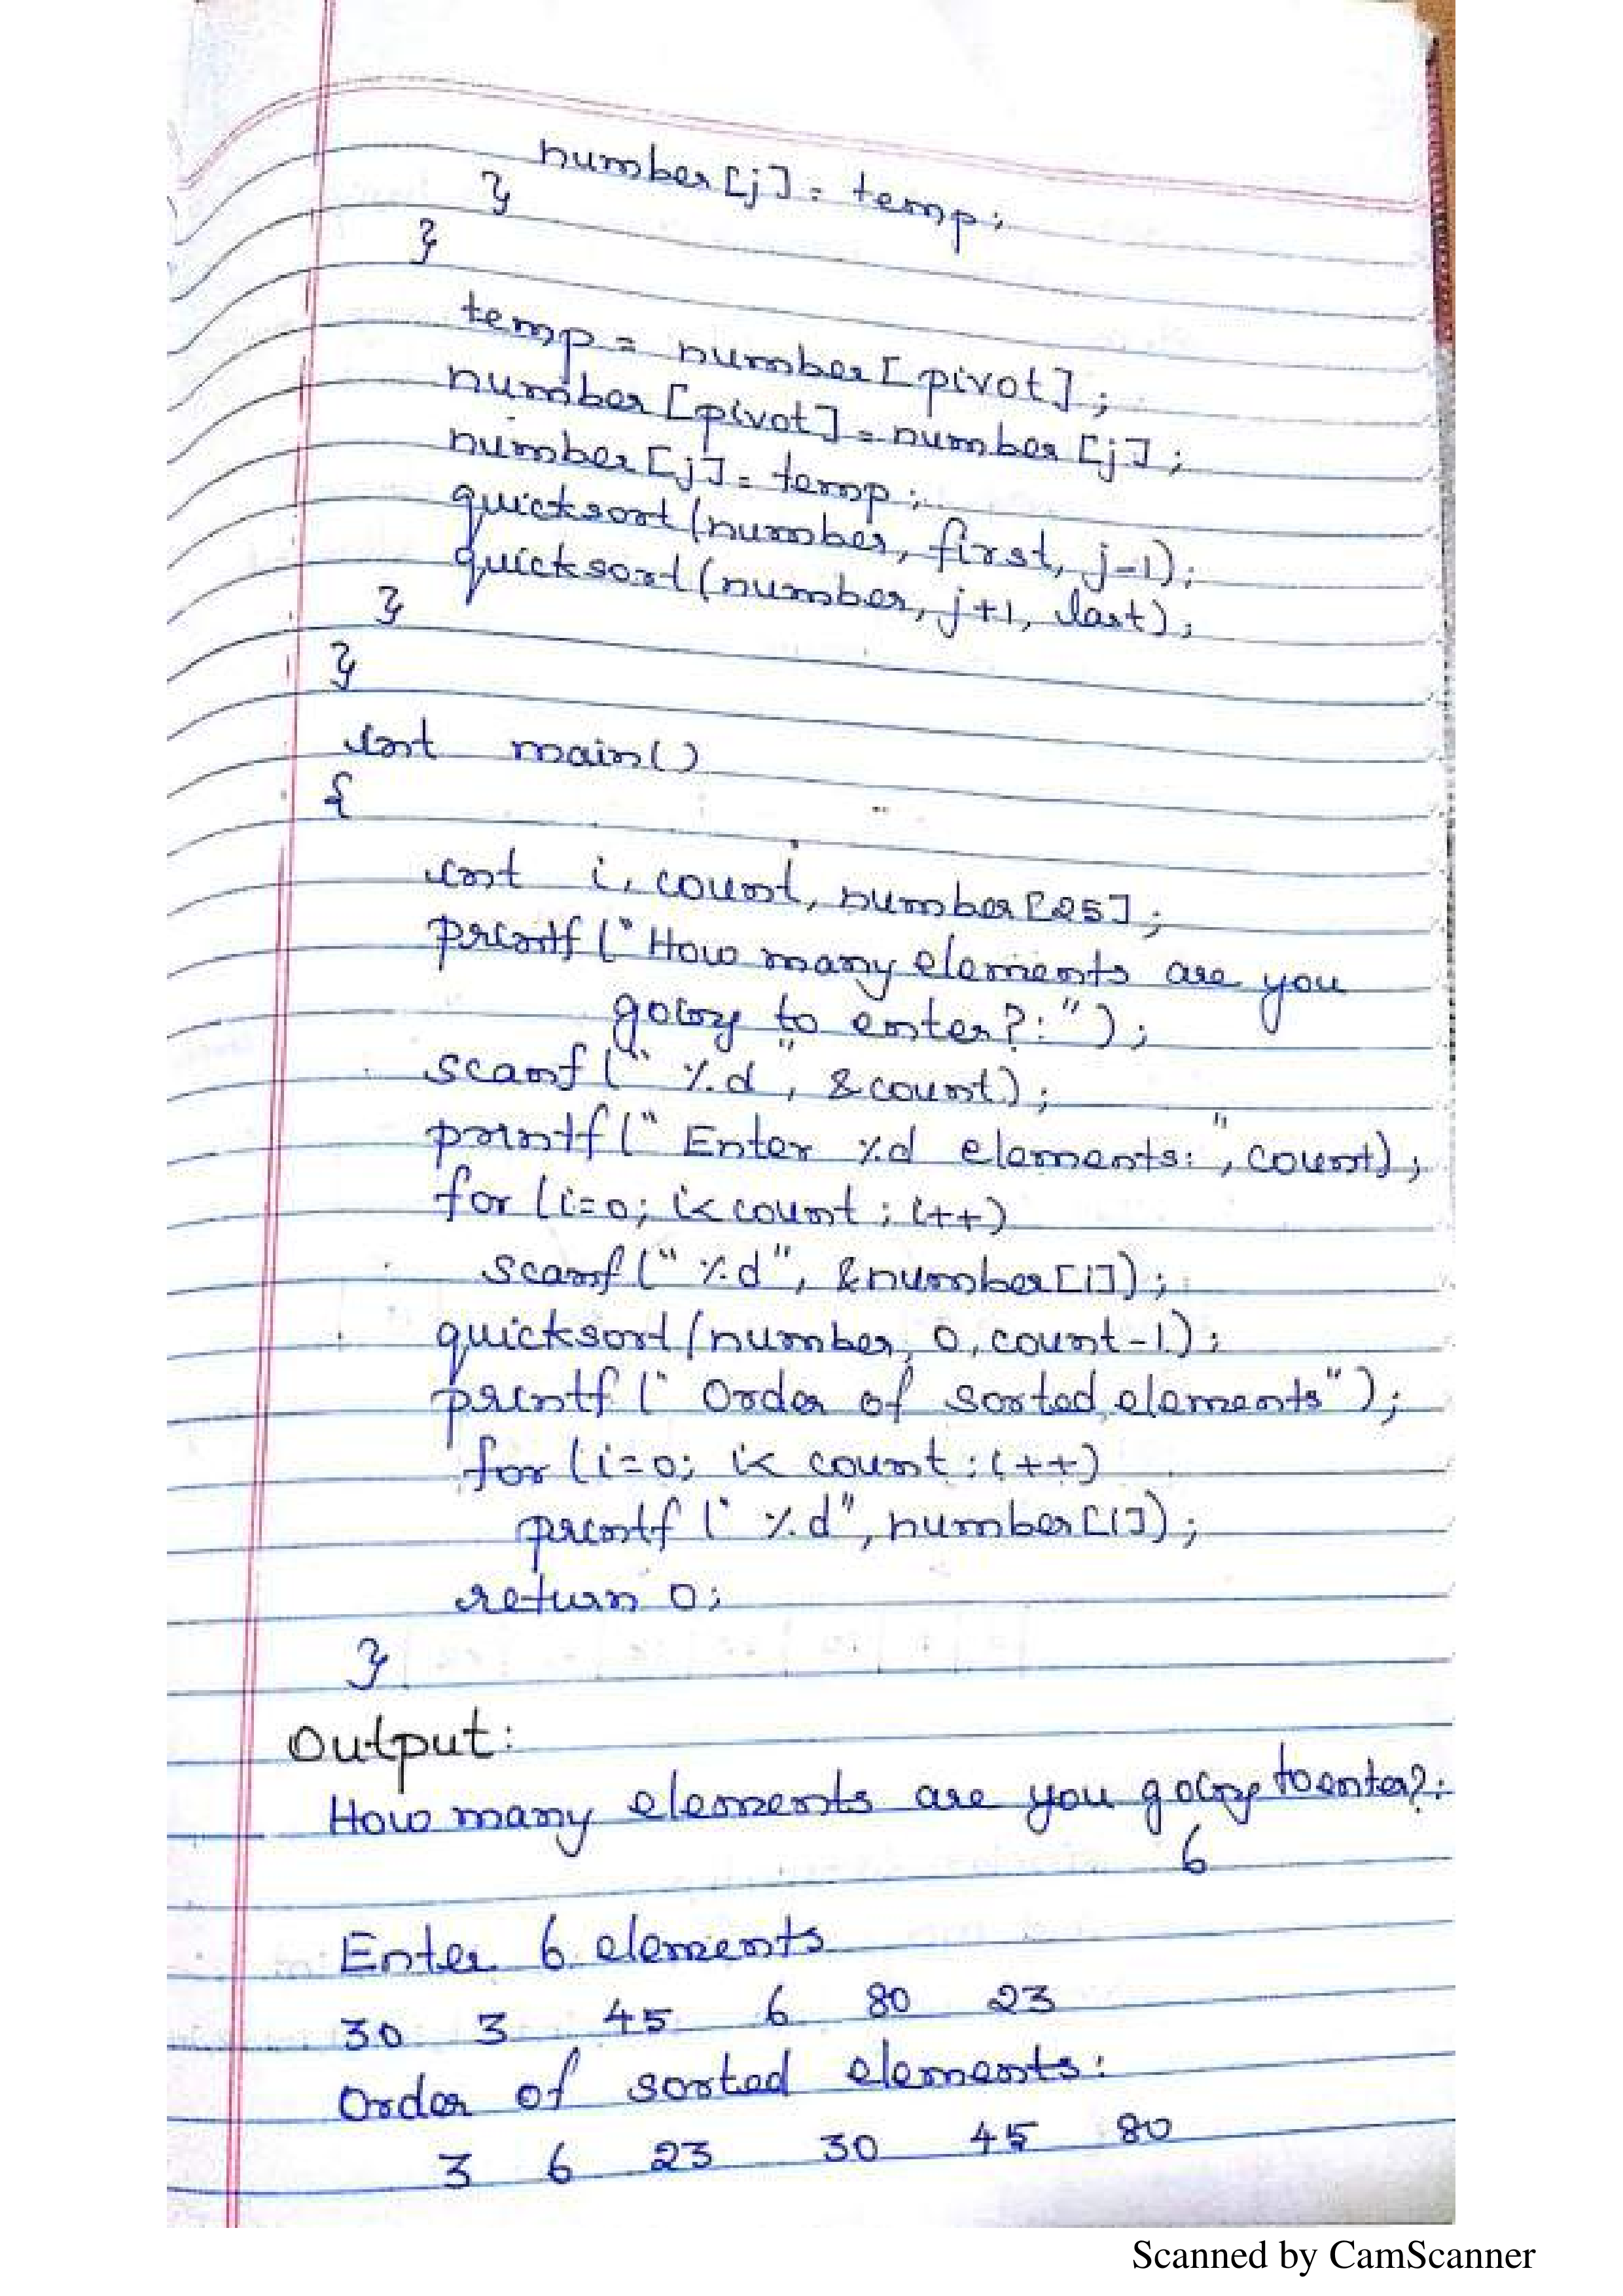 number[j] = temp;
}
}
temp = number[pivot];
number[pivot] = number[j];
number[j] = temp;
quicksort(number, first, j-1);
quicksort(number, j+1, last);
}
}
int main()
{
int i, count, number[25];
printf("How many elements are you
going to enter?:");
scanf("%d", &count);
printf("Enter %d elements:", count);
for (i=0; i<count; i++)
scanf("%d", &number[i]);
quicksort(number, 0, count-1);
printf("Order of sorted elements");
for (i=0; i<count; i++)
printf("%d", number[i]);
return 0;
}
Output:
How many elements are you going to enter?:
6
Enter 6 elements
30 3 45 6 80 23
Order of sorted elements:
3 6 23 30 45 80
Scanned by CamScanner